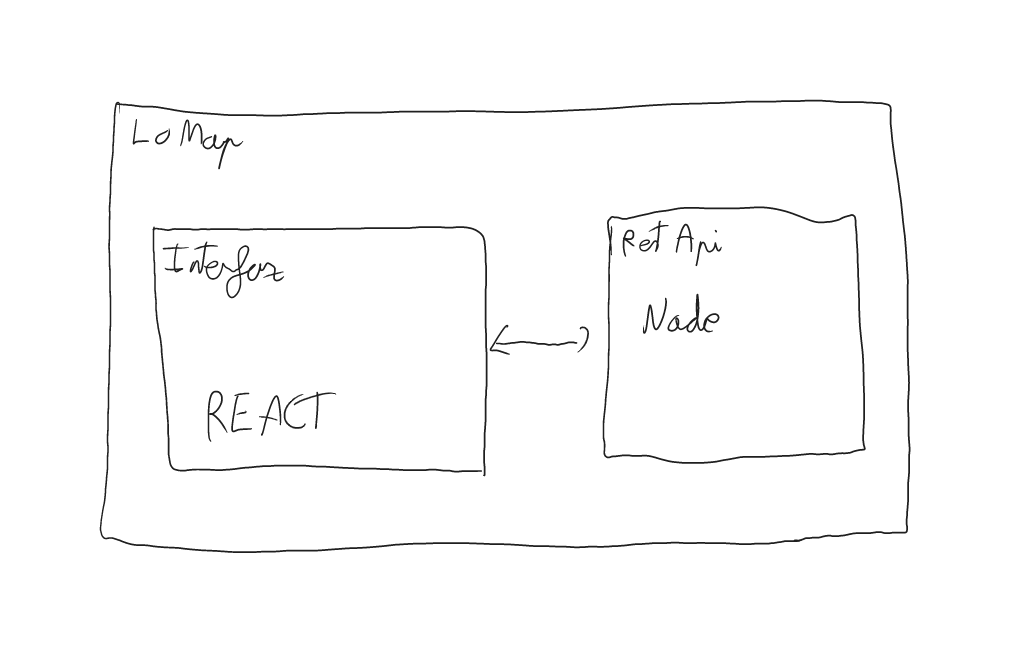 LoMap
Interfaz
REACT
Ret Api
Node